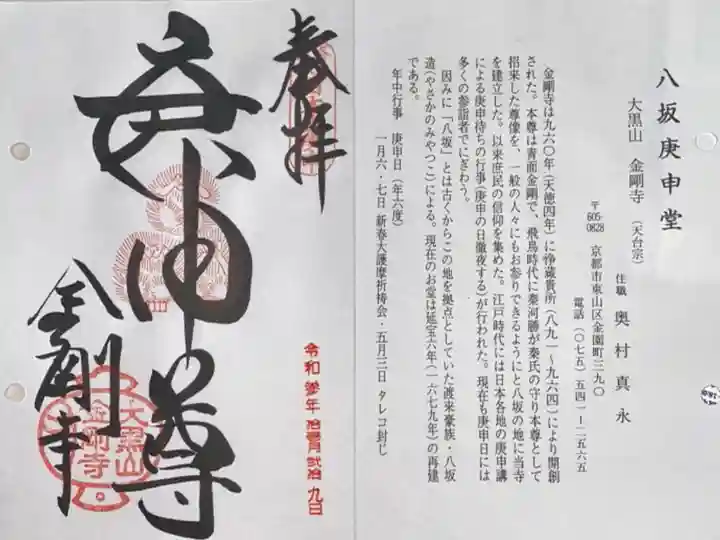 八坂庚申堂
大黒山 金剛寺 (天台宗)
住職 奥村真永
〒605-0828 京都市東山区金園町三九〇
電話 (〇七五) 五四一ー二五六五
金剛寺は九六〇年(天徳四年)に浄蔵貴所(八九一〜九六四)により開創
された。本尊は青面金剛で、飛鳥時代に秦河勝が秦氏の守り本尊として
招来した尊像を、一般の人々にもお参りできるようにと八坂の地に当寺
を建立した。以来庶民の信仰を集めた。江戸時代には日本各地の庚申講
による庚申待ちの行事(庚申の日徹夜する)が行われた。現在も庚申日には
多くの参詣者でにぎわう。
因みに「八坂」とは古くからこの地を拠点としていた渡来豪族・八坂
造(やさかのみやつこ)による。現在のお堂は延宝六年(一六七九年)の再建
である。
年中行事 庚申日(年六度)
一月六・七日 新春大護摩祈祷会・五月三日 タレコ封じ
奉拝
庚申尊
金剛寺
令和参年拾壱月弐拾九日
大黒山
金剛寺